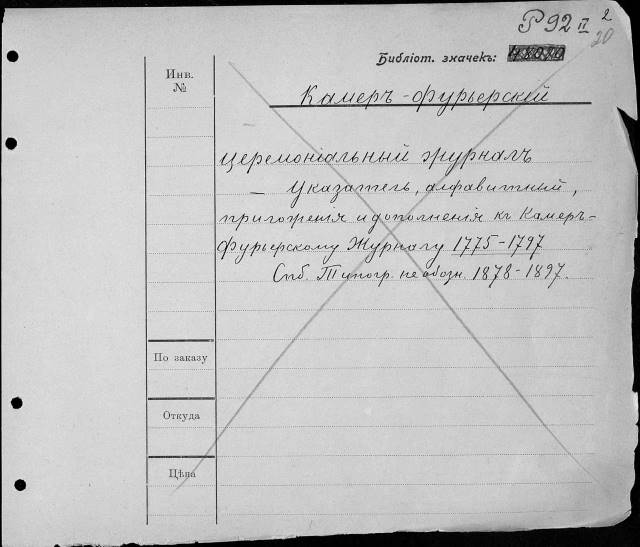 Р 92 II 2
20
Библіот. значекъ:
Инв.
№
Камеръ-фурьерскій
церемоніальный журналъ
— Указатель, алфавитный,
приложенія и дополненія къ Камеръ-
фурьерскому Журналу 1775-1797
Спб. Типогр. не обозн. 1878-1897.
По заказу
Откуда
Цѣна